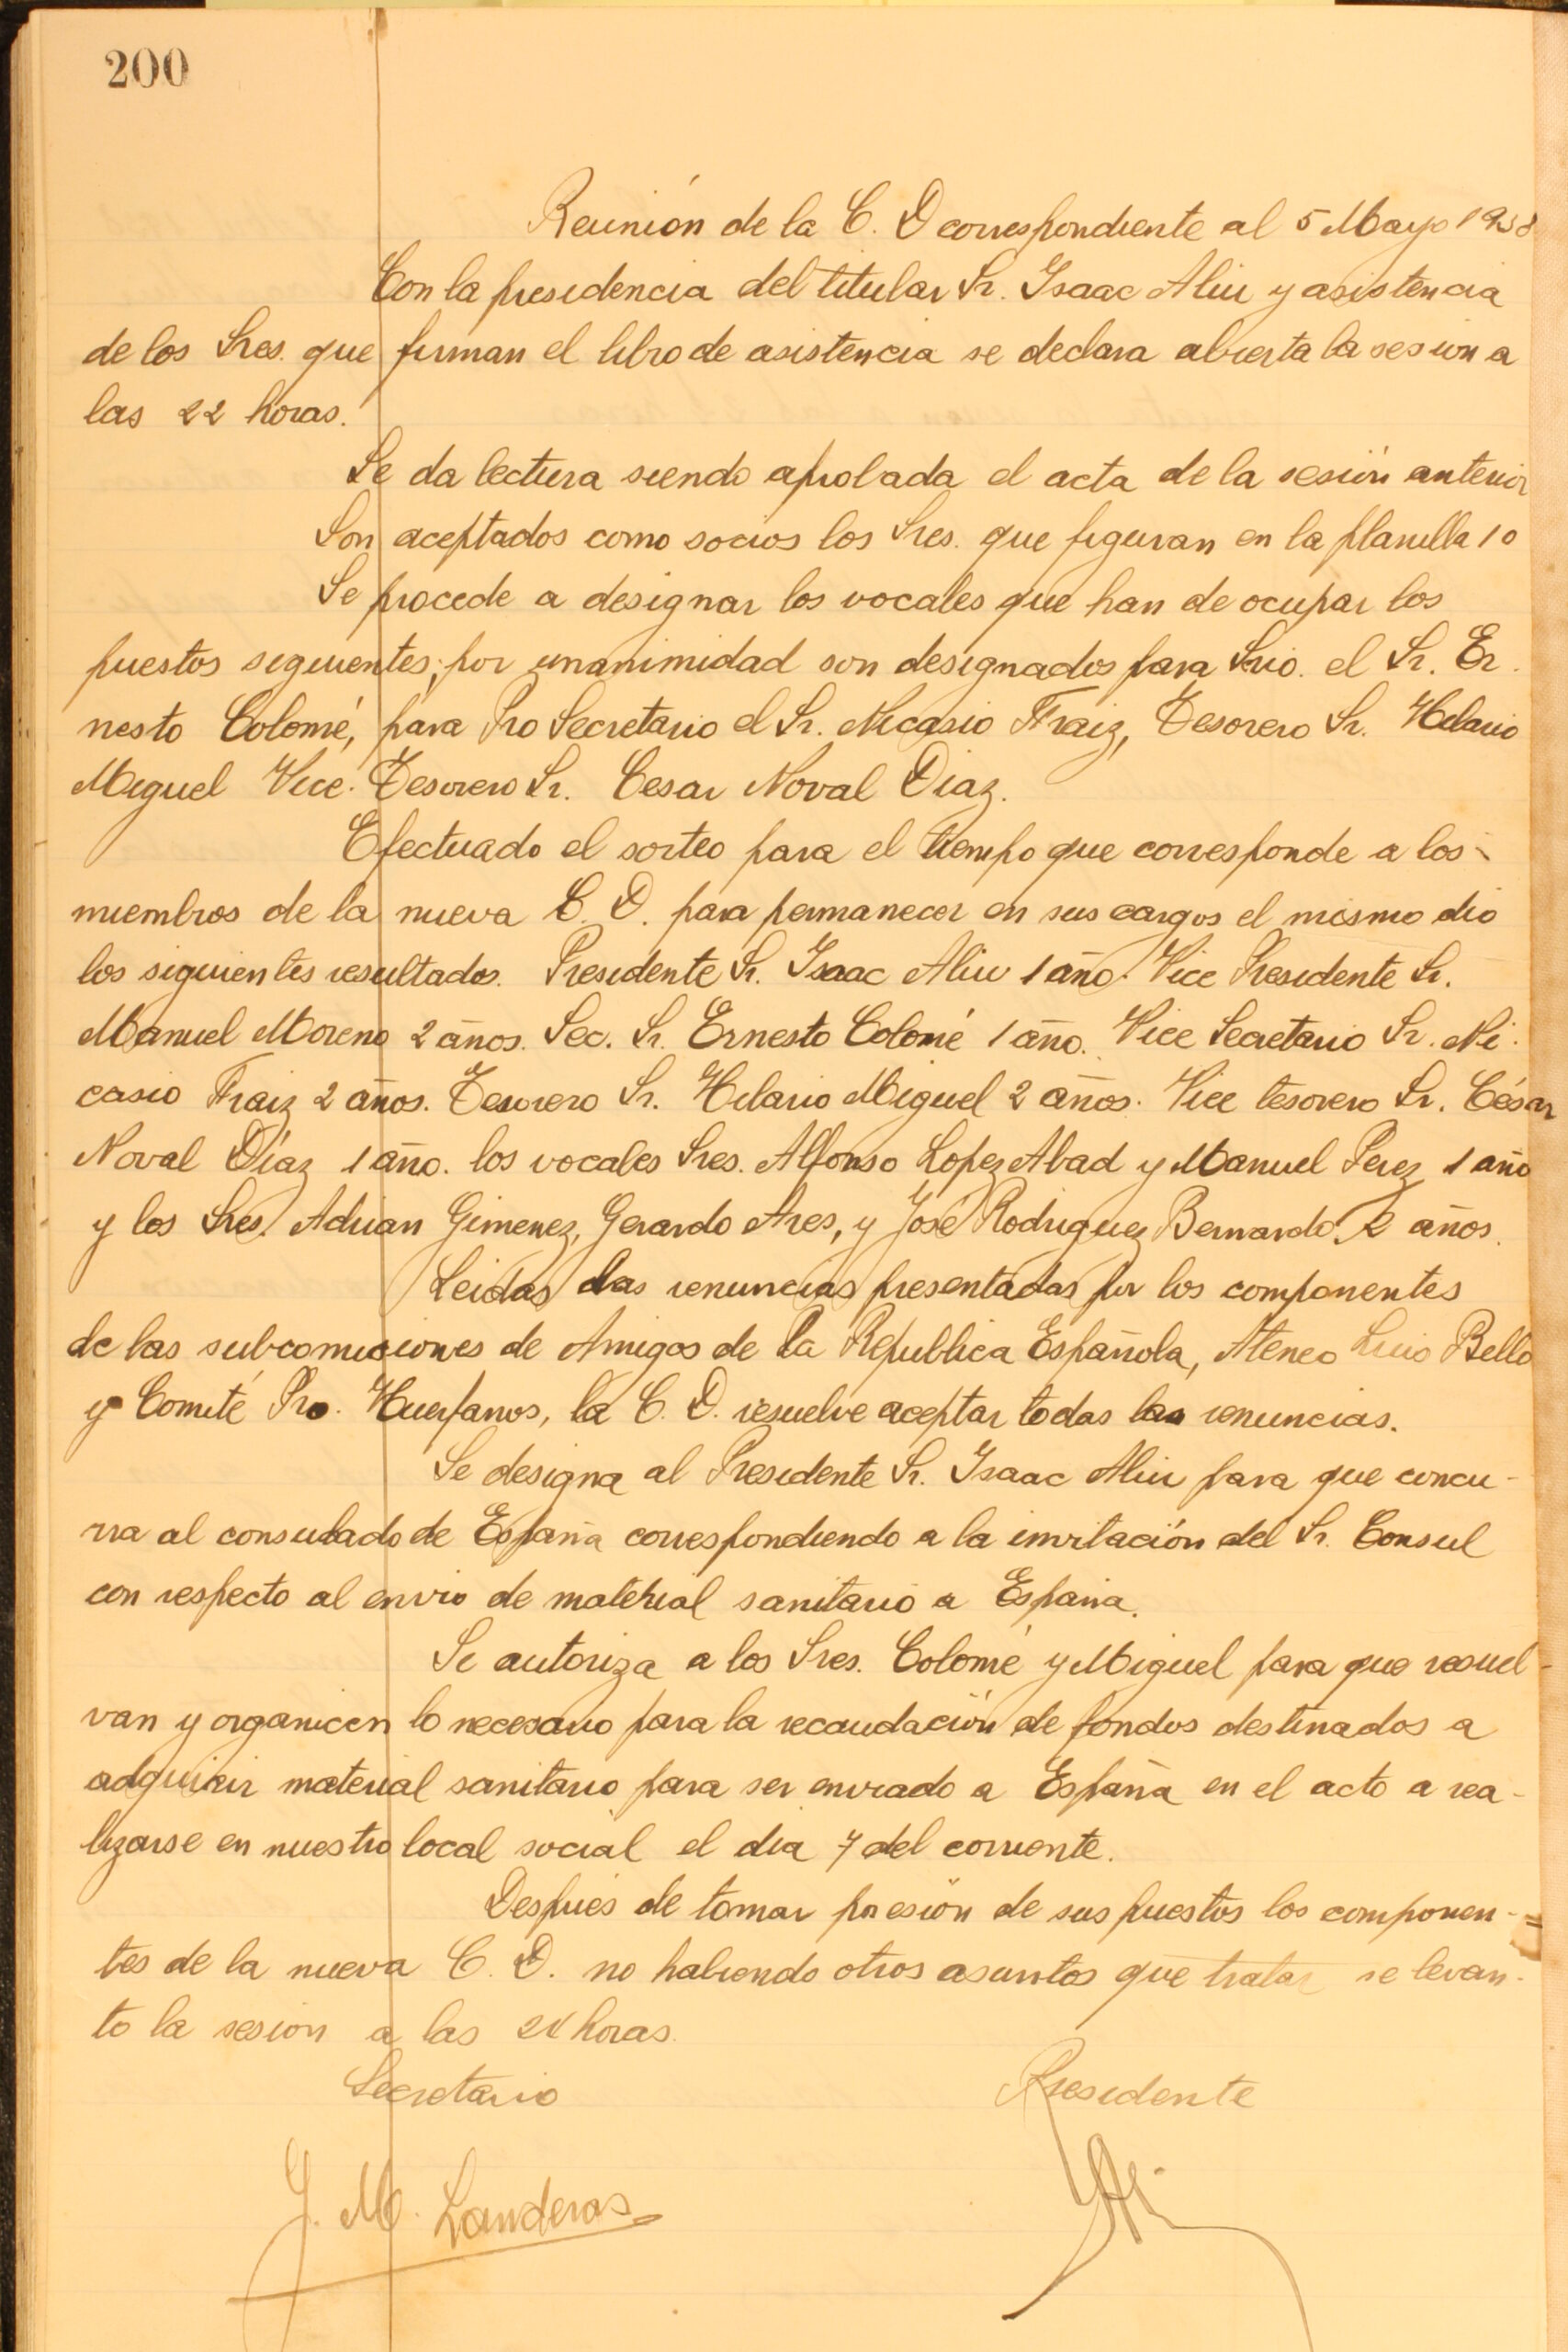 200
Reunión de la C. D correspondiente al 5 Mayo 1938
Con la presidencia del titular Sr. Isaac Aliu y asistencia
de los Sres. que firman el libro de asistencia se declara abierta la sesion a
las 22 horas.
Se da lectura siendo aprobada el acta de la sesión anterior
Son aceptados como socios los Sres. que figuran en la planilla 10
Se procede a designar los vocales que han de ocupar los
puestos siguientes; por unanimidad son designados para Srio. el Sr. Er.
nesto Colomé, para Pro Secretario el Sr. Nicasio Fraiz, Tesorero Sr. Hilario
Miguel Vice. Tesorero Sr. Cesar Noval Diaz.
Efectuado el sorteo para el tiempo que corresponde a los
miembros de la nueva C. D. para permanecer en sus cargos el mismo dio
los siguientes resultados. Presidente Sr. Isaac Aliu 1 año. Vice Presidente Sr.
Manuel Moreno 2 años. Sec. Sr. Ernesto Colomé 1 año. Vice Secretario Sr. Ni.
casio Fraiz 2 años. Tesorero Sr. Hilario Miguel 2 años. Vice tesorero Sr. César
Noval Díaz 1 año. los vocales Sres. Alfonso Lopez Abad y Manuel Perez 1 año
y los Sres. Adrian Gimenez, Gerardo Ares, y José Rodriguez Bernardo 2 años.
Leidas las renuncias presentadas por los componentes
de las subcomisiones de Amigos de la Republica Española, Ateneo Luis Bello
y Comité Pro. Huerfanos, la C. D. resuelve aceptar todas las renuncias.
Se designa al Presidente Sr. Isaac Aliu para que concu-
rra al consulado de España correspondiendo a la invitación del Sr. Consul
con respecto al envio de material sanitario a España.
Se autoriza a los Sres. Colomé y Miguel para que resuel-
van y organicen lo necesario para la recaudación de fondos destinados a
adquirir material sanitario para ser enviado a España en el acto a rea-
lizarse en nuestro local social el dia 7 del corriente.
Después de tomar posesión de sus puestos los componen-
tes de la nueva C. D. no habiendo otros asuntos que tratar se levan-
to la sesion a las horas.
Secretario Presidente
J. M. Landeras